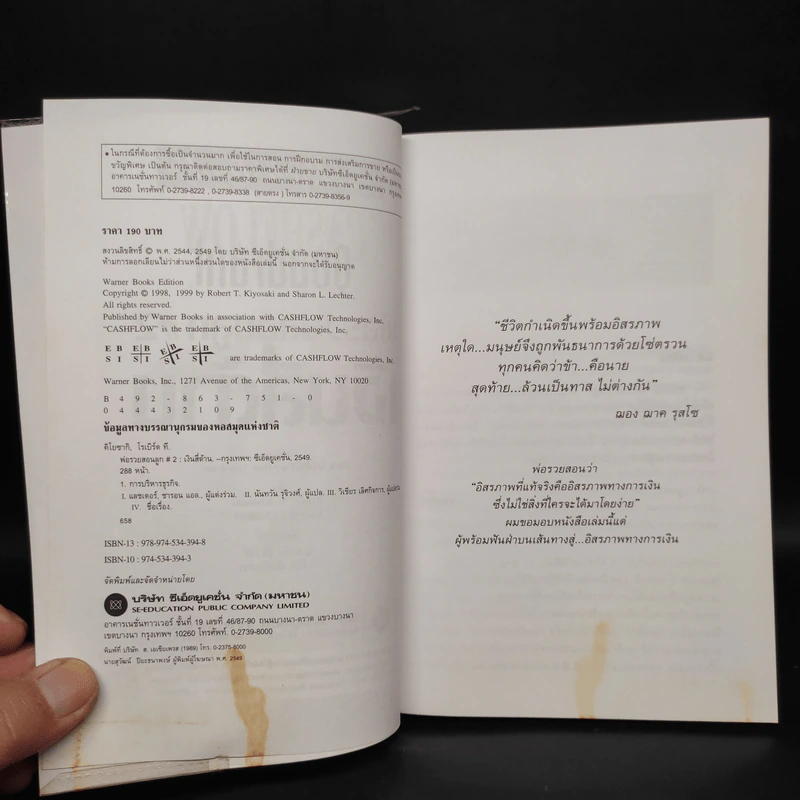 • ในกรณีที่ต้องการซื้อเป็นจำนวนมาก เพื่อใช้ในการสอน การฝึกอบรม การส่งเสริมการขาย หรือเป็น
ขวัญพิเศษ เป็นต้น กรุณาติดต่อสอบถามราคาพิเศษได้ที่ ฝ่ายขาย บริษัทซีเอ็ดยูเคชั่น จำกัด (มหาชน)
อาคารเนชั่นทาวเวอร์ ชั้นที่ 19 เลขที่ 46/87-90 ถนนบางนา-ตราด แขวงบางนา เขตบางนา กรุงเทพฯ
10260 โทรศัพท์ 0-2739-8222 , 0-2739-8338 (สายตรง) โทรสาร 0-2739-8356-9
ราคา 190 บาท
สงวนลิขสิทธิ์ © พ.ศ. 2544, 2549 โดย บริษัท ซีเอ็ดยูเคชั่น จำกัด (มหาชน)
ห้ามการลอกเลียนไม่ว่าส่วนหนึ่งส่วนใดของหนังสือเล่มนี้ นอกจากจะได้รับอนุญาต
Warner Books Edition
Copyright © 1998, 1999 by Robert T. Kiyosaki and Sharon L. Lechter.
All rights reserved.
Published by Warner Books in association with CASHFLOW Technologies, Inc.
“CASHFLOW” is the trademark of CASHFLOW Technologies, Inc.
E B E B E B E B
S I S I S I S I are trademarks of CASHFLOW Technologies, Inc.
Warner Books, Inc., 1271 Avenue of the Americas, New York, NY 10020
B 4 9 2 - 8 6 3 - 7 5 1 - 0
0 4 4 4 3 2 1 0 9
ข้อมูลทางบรรณานุกรมของหอสมุดแห่งชาติ
คิโยซากิ, โรเบิร์ต ที.
พ่อรวยสอนลูก # 2 : เงินสี่ด้าน. --กรุงเทพฯ: ซีเอ็ดยูเคชั่น, 2549.
288 หน้า.
1. การบริหารธุรกิจ.
I. แลชเตอร์, ชารอน แอล., ผู้แต่งร่วม. II. นันทวัน รุจิวงศ์, ผู้แปล. III. วิเชียร เลิศกิจการ, ผู้แปล
IV. ชื่อเรื่อง.
658
ISBN-13 : 978-974-534-394-8
ISBN-10 : 974-534-394-3
จัดพิมพ์และจัดจำหน่ายโดย
บริษัท ซีเอ็ดยูเคชั่น จำกัด (มหาชน)
SE-EDUCATION PUBLIC COMPANY LIMITED
อาคารเนชั่นทาวเวอร์ ชั้นที่ 19 เลขที่ 46/87-90 ถนนบางนา-ตราด แขวงบางนา
เขตบางนา กรุงเทพฯ 10260 โทรศัพท์. 0-2739-8000
พิมพ์ที่ บริษัท ส. เอเชียเพรส (1989) โทร. 0-2375-6000
นายสุวัฒน์ ปิยะธนาพงษ์ ผู้พิมพ์ผู้โฆษณา พ.ศ. 2549
“ชีวิตกำเนิดขึ้นพร้อมอิสรภาพ
เหตุใด...มนุษย์จึงถูกพันธนาการด้วยโซ่ตรวน
ทุกคนคิดว่าข้า...คือนาย
สุดท้าย...ล้วนเป็นทาส ไม่ต่างกัน”
ฌอง ฌาค รุสโซ
พ่อรวยสอนว่า
“อิสรภาพที่แท้จริงคืออิสรภาพทางการเงิน
ซึ่งไม่ใช่สิ่งที่ใครจะได้มาโดยง่าย”
ผมขอมอบหนังสือเล่มนี้แด่
ผู้พร้อมฟันฝ่าบนเส้นทางสู่...อิสรภาพทางการเงิน